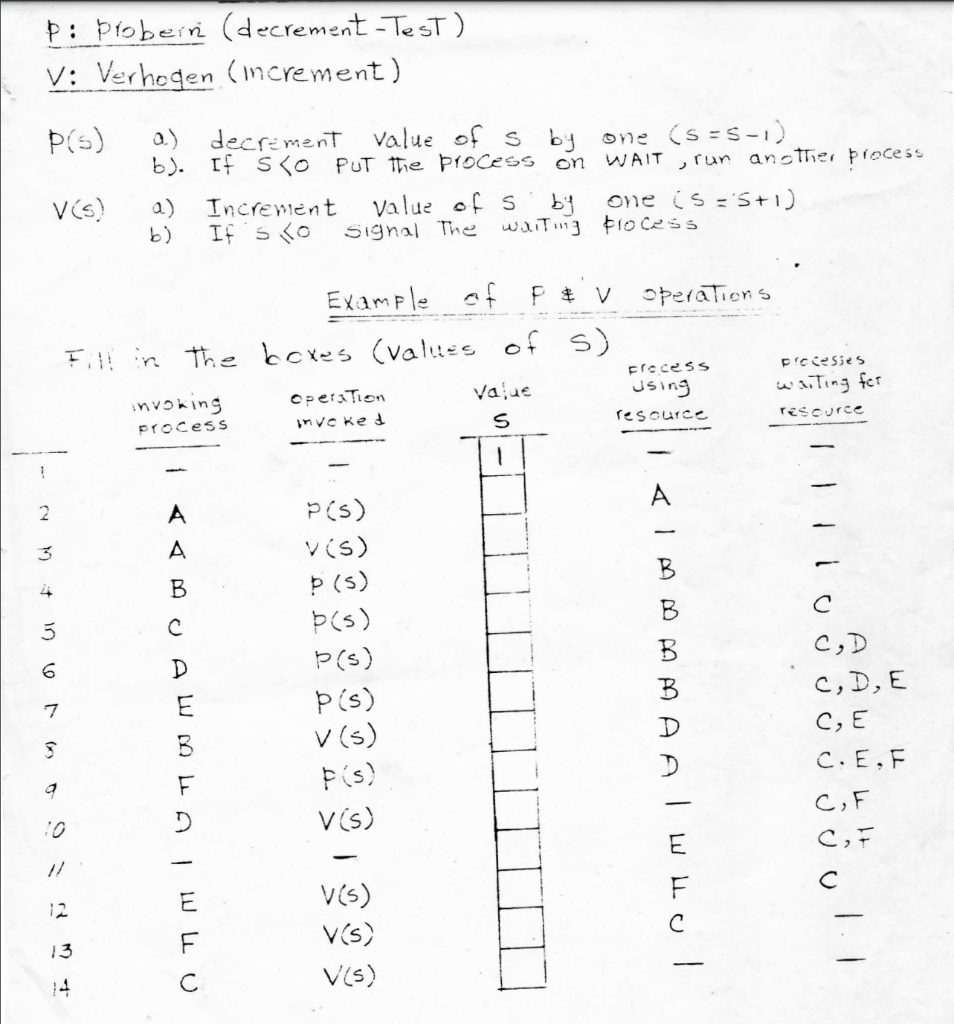 P: Proberin (decrement-Test)
V: Verhogen (increment)
P(s) a) decrement value of s by one (s=s-1)
b). If s<0 put the process on WAIT, run another process
V(s) a) Increment value of s by one (s=s+1)
b) If s≤0 signal the waiting process
Example of P & V operations
Fill in the boxes (values of S)
invoking process operation invoked Value S process using resource processes waiting for resource
1 — — 1 — —
2 A P(s) A —
3 A V(s) — —
4 B P(s) B —
5 C P(s) B C
6 D P(s) B C,D
7 E P(s) B C,D,E
8 B V(s) D C,E
9 F P(s) D C.E,F
10 D V(s) — C,F
11 — — E C,F
12 E V(s) F C
13 F V(s) C —
14 C V(s) — —